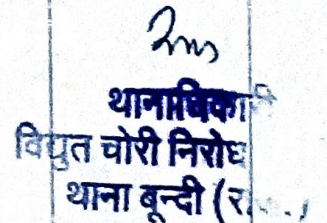 थानाधिकारी
विद्युत चोरी निरोध
थाना बून्दी (रा